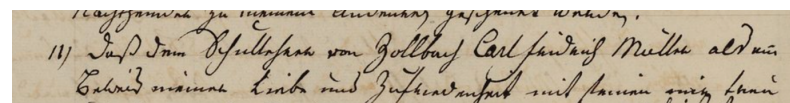 Nachstehendes zu meinem Andenken geschenkt werden.
11) Daß dem Schullehrer von Zollbach Carl Friedrich Müller als ein
Beweis meiner Liebe und Zufriedenheit mit seinen mir treu